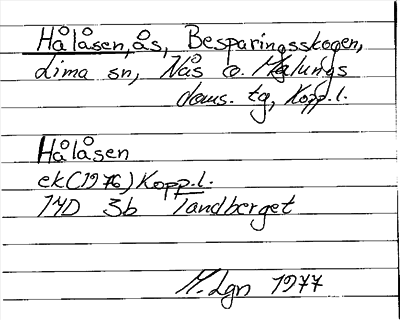 Hålåsen, ås, Besparingsskogen,
Lima sn, Nås o. Malungs
doms. tg, Kopp.l.
Hålåsen
ek(1976) Kopp.l.
14D 3b Tandberget
M.Lgn 1977